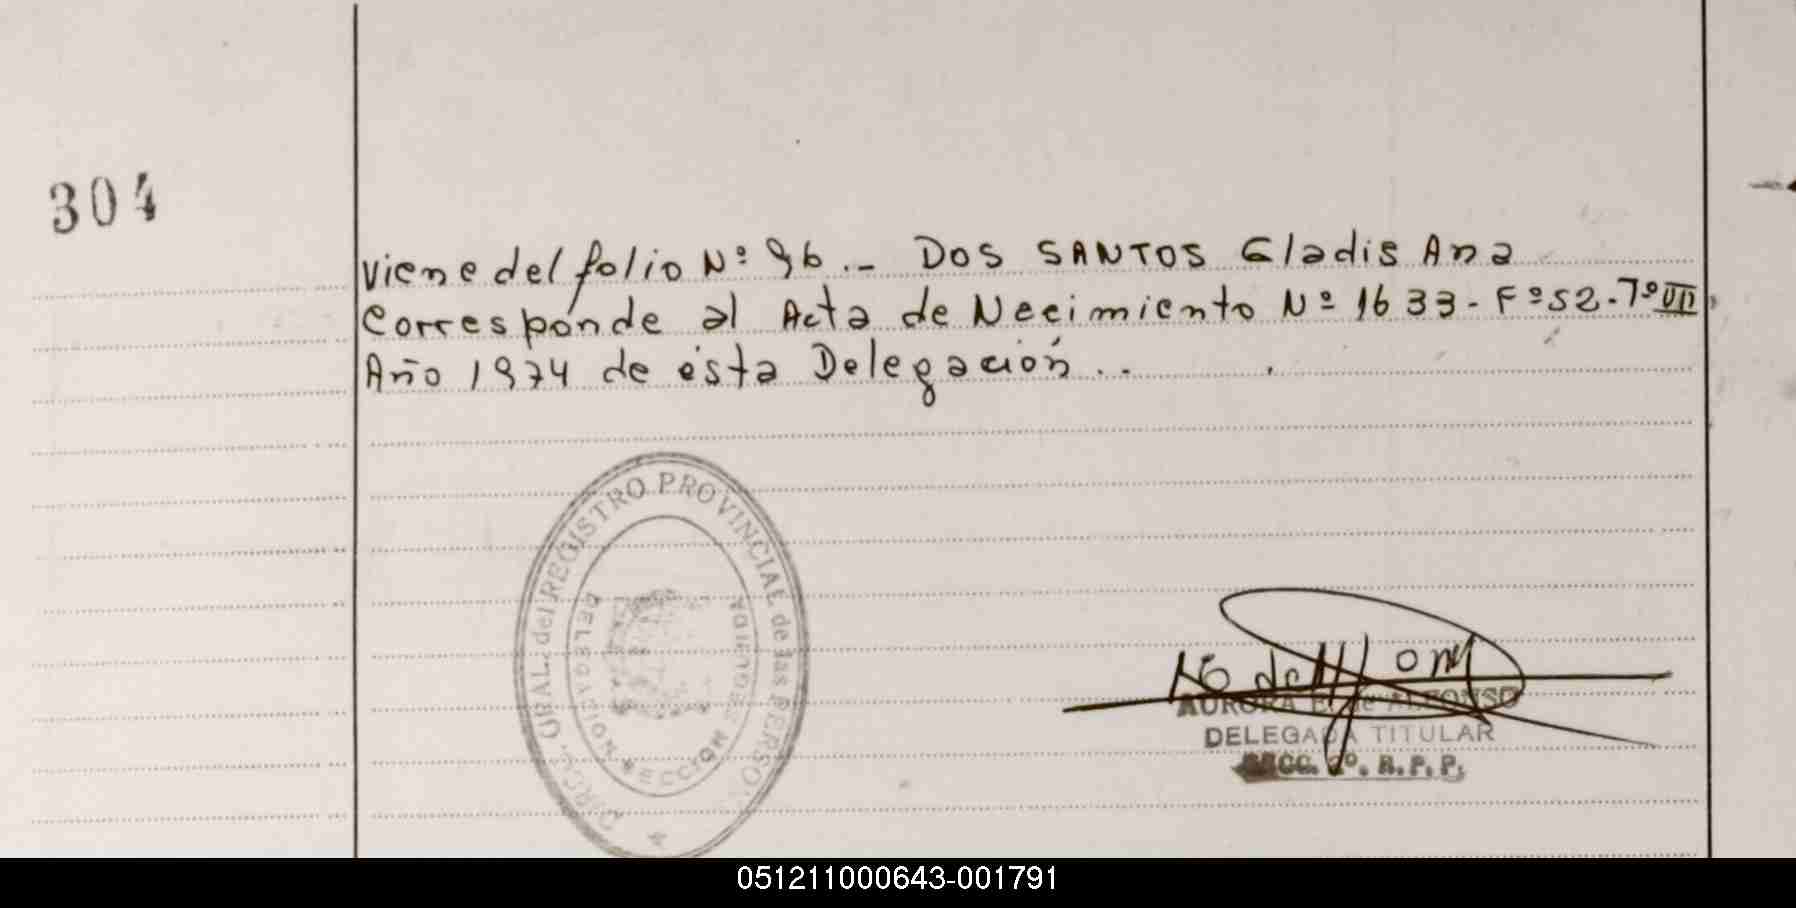 304
Viene del folio Nº 96.- DOS SANTOS Gladis Ana
Corresponde al Acta de Necimiento Nº 1633 - Fº 52 - Tº VII
Año 1974 de ésta Delegación..
GRAL. del REGISTRO PROVINCIAL de las PERSO
DELEGACION SECCION SEGUNDA
AURORA E. de ALFONSO
DELEGADA TITULAR
SECC. 2º. R. P. P.
051211000643-001791